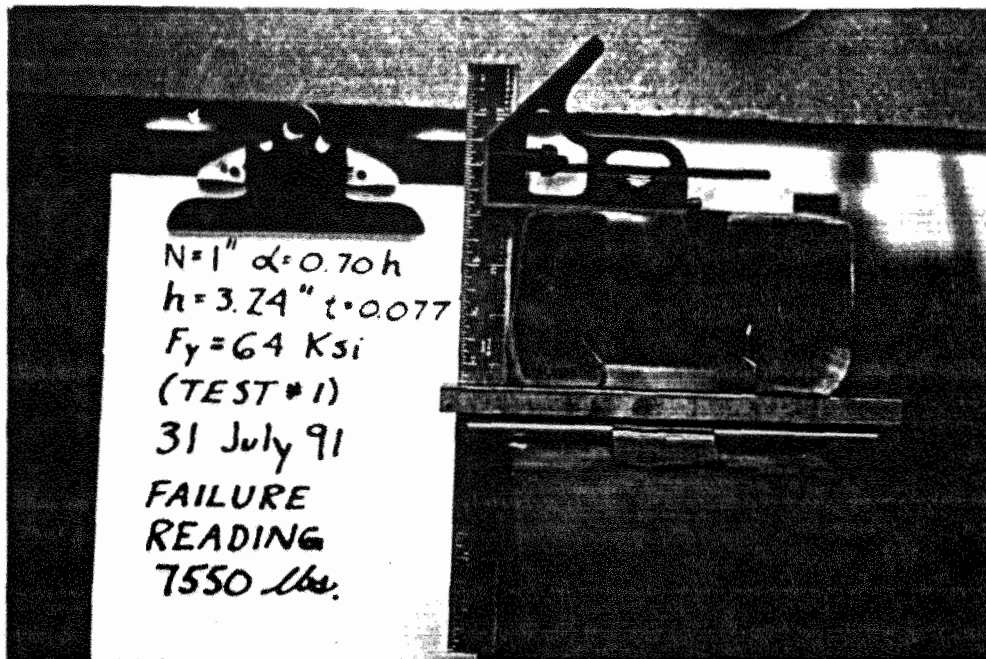 N=1" α=0.70h
h=3.24" t=0.077
Fy=64 Ksi
(TEST #1)
31 July 91
FAILURE
READING
7550 lbs.